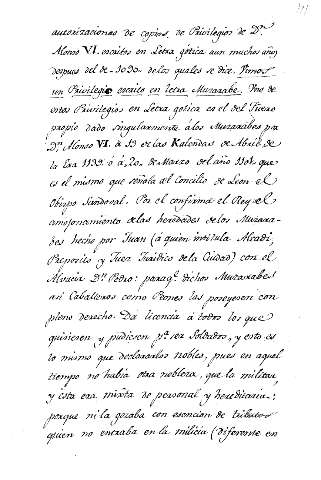 autorizaciones de copias, de Privilegios de Dn.
Alonso VI. escritos en Letra gótica aun muchos años
despues del de 1090. de los quales se dice. Vimos
un Privilegio escrito en letra Muzarabe. Uno de
estos Privilegios en Letra gotica es el del Fuero
propio dado singularmente á los Muzarabes por
Dn. Alonso VI. á 13 de las Kalendas de Abril de
la Era 1139. ó á 20. de Marzo del año 1101. que
es el mismo que señala al Concilio de Leon el
Obispo Sandoval. Por él confirma el Rey el
amojonamiento de las heredades de los Muzara-
bes hecho por Juan (á quien intitula Alcadi,
Preposito y Juez Juridico de la Ciudad) con el
Alvacir Dn. Pedro: para qe. dichos Muzarabes
asi Caballeros como Peones las poseyesen con
pleno derecho. Da licencia á todos los que
quisiesen y pudiesen pa. ser Soldados, y esto es
lo mismo que declararlos nobles, pues en aquel
tiempo no habia otra nobleza, que la militar,
y esta era mixta de personal y hereditaria:
porque ni la gozaba con esencion de tributos
quien no entraba en la milicia (diferente en